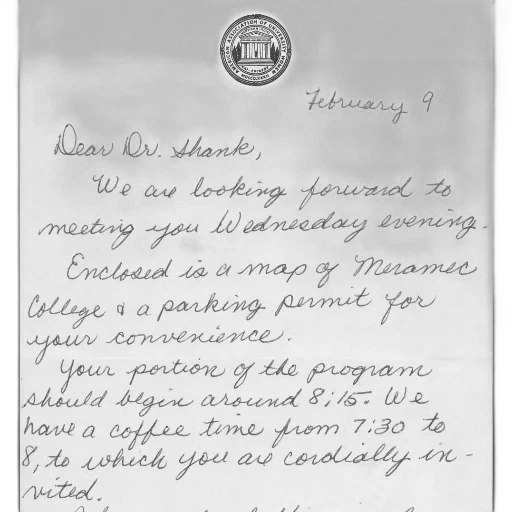 AMERICAN ASSOCIATION OF UNIVERSITY WOMEN
February 9
Dear Dr. Shank,
We are looking forward to
meeting you Wednesday evening.
Enclosed is a map of Meramec
College & a parking permit for
your convenience.
Your portion of the program
should begin around 8:15. We
have a coffee time from 7:30 to
8, to which you are cordially in-
vited.